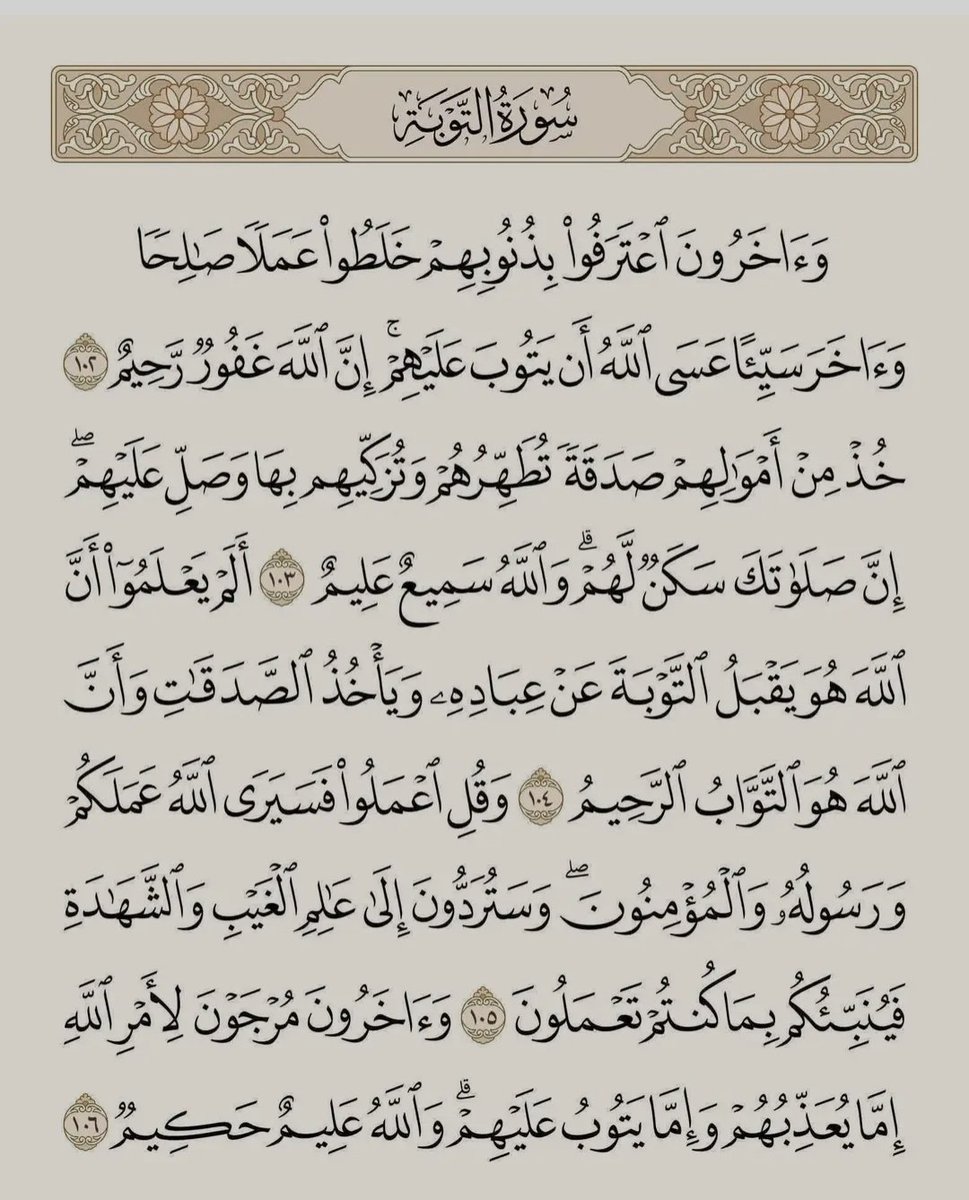 سُورَةُ التَّوْبَةِ
وَءَاخَرُونَ ٱعْتَرَفُوا۟ بِذُنُوبِهِمْ خَلَطُوا۟ عَمَلًا صَـٰلِحًا
وَءَاخَرَ سَيِّئًا عَسَى ٱللَّهُ أَن يَتُوبَ عَلَيْهِمْ ۚ إِنَّ ٱللَّهَ غَفُورٌ رَّحِيمٌ ١٠٢
خُذْ مِنْ أَمْوَٰلِهِمْ صَدَقَةً تُطَهِّرُهُمْ وَتُزَكِّيهِم بِهَا وَصَلِّ عَلَيْهِمْ ۖ
إِنَّ صَلَوٰتَكَ سَكَنٌ لَّهُمْ ۗ وَٱللَّهُ سَمِيعٌ عَلِيمٌ ١٠٣ أَلَمْ يَعْلَمُوٓا۟ أَنَّ
ٱللَّهَ هُوَ يَقْبَلُ ٱلتَّوْبَةَ عَنْ عِبَادِهِۦ وَيَأْخُذُ ٱلصَّدَقَـٰتِ وَأَنَّ
ٱللَّهَ هُوَ ٱلتَّوَّابُ ٱلرَّحِيمُ ١٠٤ وَقُلِ ٱعْمَلُوا۟ فَسَيَرَى ٱللَّهُ عَمَلَكُمْ
وَرَسُولُهُۥ وَٱلْمُؤْمِنُونَ ۖ وَسَتُرَدُّونَ إِلَىٰ عَـٰلِمِ ٱلْغَيْبِ وَٱلشَّهَـٰدَةِ
فَيُنَبِّئُكُم بِمَا كُنتُمْ تَعْمَلُونَ ١٠٥ وَءَاخَرُونَ مُرْجَوْنَ لِأَمْرِ ٱللَّهِ
إِمَّا يُعَذِّبُهُمْ وَإِمَّا يَتُوبُ عَلَيْهِمْ ۗ وَٱللَّهُ عَلِيمٌ حَكِيمٌ ١٠٦